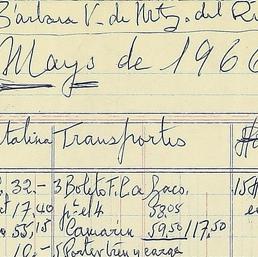 Bárbara V. de Mtz. del Ri
Mayo de 196
talina Transportes
32.- 3 Boleto F.C. a Zaco.
17.40 pª el 4 53.05
55,15 Camarín 59,50 / 117,50
10.- 5 Portes tren y carga